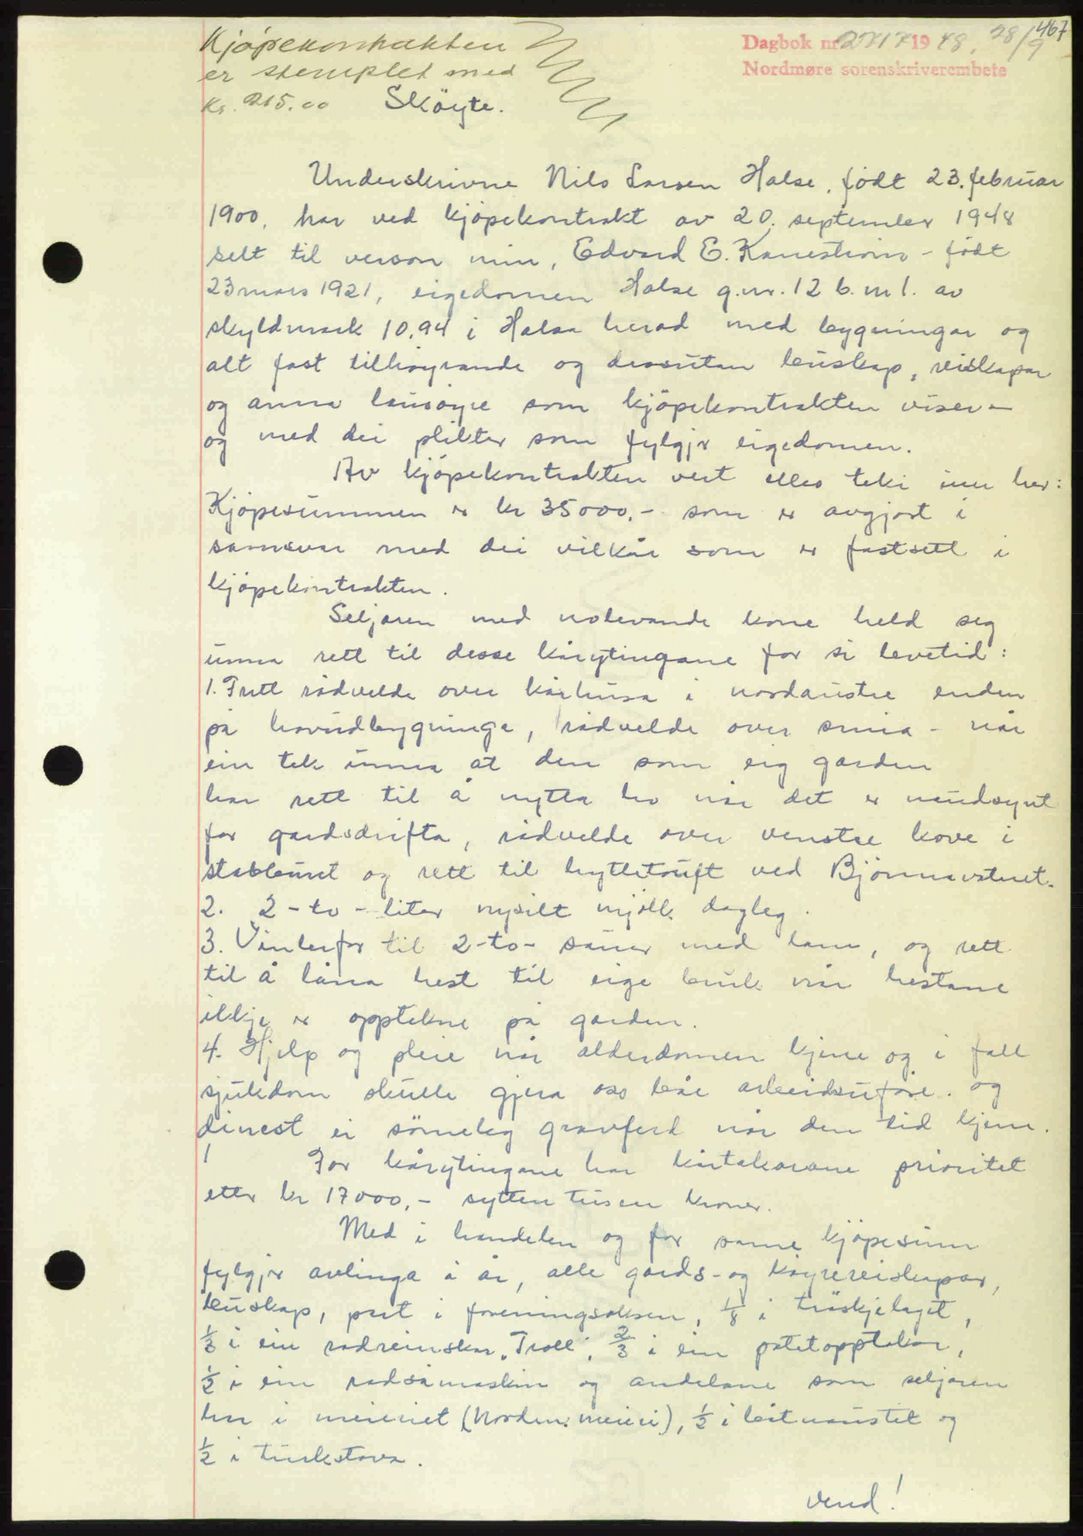 467
Kjøpekontrakten
er stemplet med
Kr. 215.00
Dagbok nr. 2717 1948, 28/9
Nordmøre sorenskriverembete
Sköyte.
Underskrivne Nils Larsen Halse, født 23. februar
1900, har ved kjöpekontrakt av 20. september 1948
selt til verson min, Edvard E. Kanestrøm - født
23 mars 1921, eigedomen Halse g.nr. 12 b.nr 1. av
skyldmark 10.94 i Halsa herad med bygningar og
alt fast tilhøyrande og dessutan buskap, reiskapar
og anna lausøyre som kjöpekontrakten viser -
og med dei plikter som fylgjr eigedomen.
Av kjöpekontrakten vert elles teke inn her:
Kjöpesummen er kr 35000,- som er avgjort i
samsvar med dei vilkår som er fastsett i
kjöpekontrakten.
Seljaren med nolevande kone held seg
unna rett til desse kårytingane for si levetid:
1. Fritt rådvelde over kårhusa i nordaustre enden
på hovudbygninga, rådvelde over smia - når
ein tek unna at den som eig garden
har rett til å nytta ho når det er naudsynt
for gardsdrifta, rådvelde over venstre kove i
stabburet og rett til hyttetouft ved Bjørnavatnet.
2. 2 - to - liter nysilt mjölk dagleg.
3. Vinterfor til 2-to- sauer med lam, og rett
til å låna hest til eige bruk når hestane
ikkje er opptekne på garden.
4. Hjelp og pleie når alderdomen kjem og i fall
sjukdom skulle gjera oss båe arbeidsuføre. og
dinest ei sömeleg gravferd når den tid kjem.
For kårytingane har kårtakarane prioritet
etter kr 17000,- sytten tusen kroner.
Med i handelen og for same kjöpesum
fylgjer avlinga i år, alle gards- og köyrereiskapar,
buskap, part i foreningsoksen, 1/8 i träskjelaget,
1/3 i ein radreinskar "Troll", 2/3 i ein potetopptakar,
1/2 i ein radsåmaskin og andelane som seljaren
har i meieriet (Nordm. meieri), 1/2 i båtnaustet og
1/2 i turkstova.
Vend!